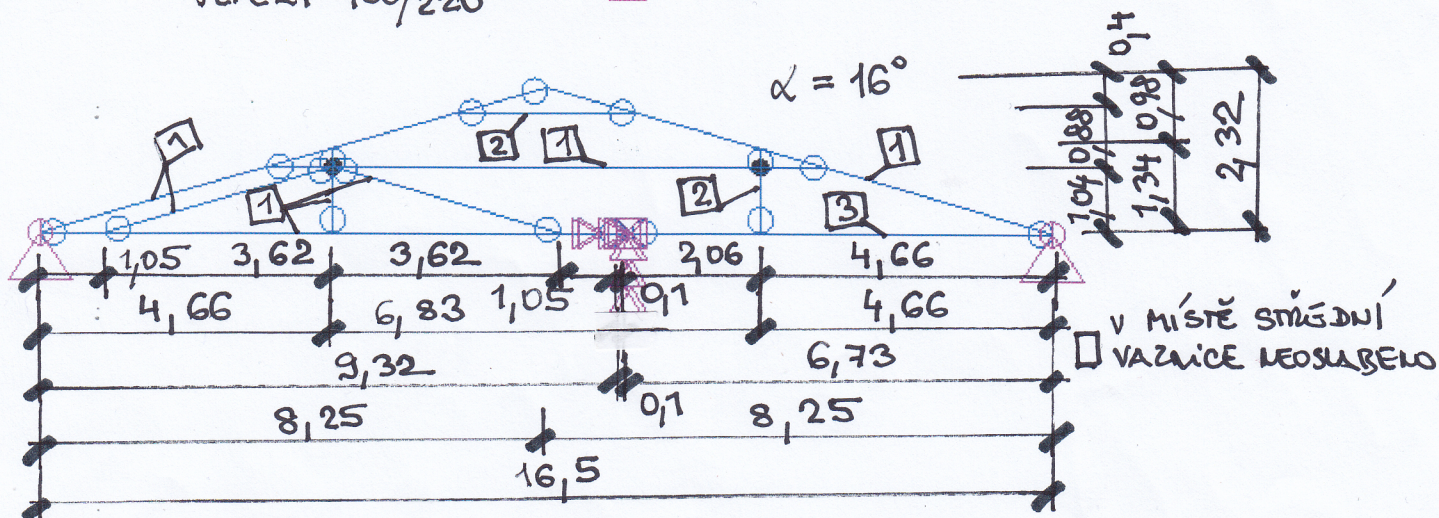 100/220
α = 16°
0,4
0,88
0,98
1,04
1,34
2,32
1
2
1
1
1
2
3
1,05
3,62
3,62
2,06
4,66
4,66
6,83
1,05
0,1
4,66
9,32
6,73
0,1
8,25
8,25
16,5
V MÍSTĚ STŘEDNÍ
VAZNICE NEOSLABENO